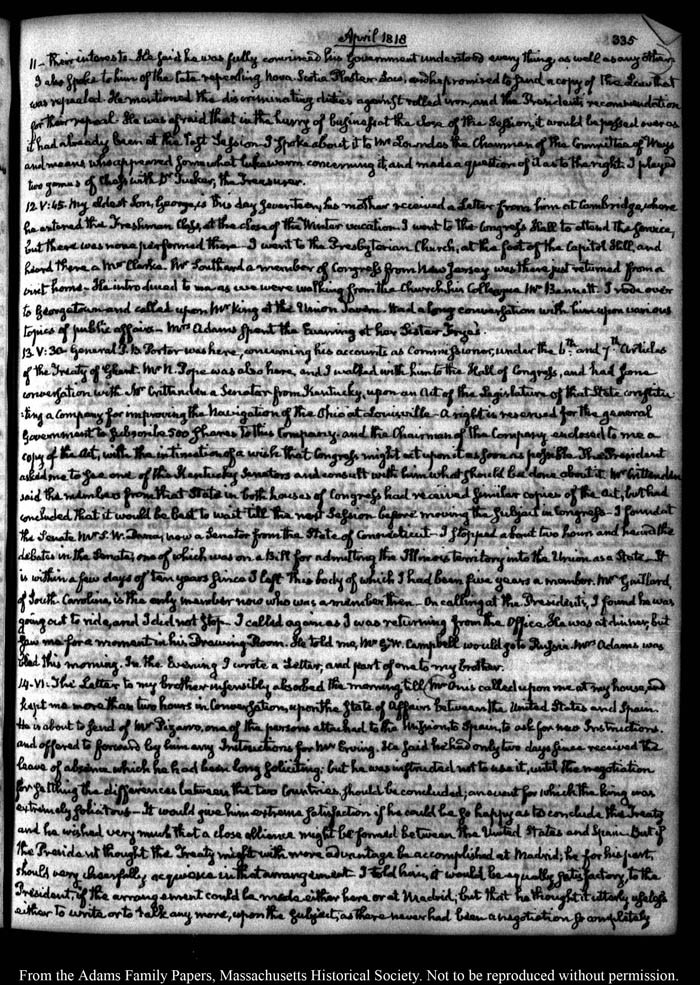 April 1818
335
11— their interests. He said he was fully convinced his Government understood every thing, as well as any other.
I also spoke to him of the late repealing Nova Scotia Plaster Law, and he promised to send a copy of the Law that
was repealed. He mentioned the discriminating duties against rolled iron, and the President's recommendation
for their repeal. He was afraid that in the hurry of business at the close of the Session, it would be passed over as
it had already been at the last Session. I spoke about it to Mr Lowndes the Chairman of the Committee of Ways
and means who appeared somewhat lukewarm concerning it, and made a question of it as to the right. I played
two games of Chess with Dr Tucker, the Treasurer.
12 V:45. My eldest Son, George, is this day seventeen; his mother received a Letter from him at Cambridge, where
he entered the Freshman Class, at the close of the Winter vacation. I went to the Congress Hall to attend the Service,
but there was none performed there. I went to the Presbyterian Church, at the foot of the Capitol Hill, and
heard there a Mr Clarke. Mr Southard a member of Congress from New Jersey was there just returned from a
visit home— He introduced to me as we were walking from the Church his Colleague Mr Bennett. I rode over
to Georgetown and called upon Mr King at the Union Tavern. Had a long conversation with him upon various
topics of public affairs— Mrs Adams spent the Evening at her Sister Frye's.
13 V:30. General P. B. Porter was here, concerning his accounts as Commissioner, under the 6th and 7th Articles
of the Treaty of Ghent. Mr N. Pope was also here, and I walked with him to the Hall of Congress, and had some
conversation with Mr Crittenden a Senator from Kentucky, upon an Act of the Legislature of that State constitu-
:ting a Company for improving the Navigation of the Ohio at Louisville— A right is reserved for the general
Government to subscribe 500 shares to this Company; and the Chairman of the Company enclosed to me a
copy of the Act, with the intimation of a wish that Congress might act upon it as soon as possible. The President
asked me to see one of the Kentucky Senators and consult with him what should be done about it. Mr Crittenden
said the members from that State in both houses of Congress had received similar copies of the Act, but had
concluded that it would be best to wait till the next Session before moving the subject in Congress— I found at
the Senate Mr S. W. Dana, now a Senator from the State of Connecticut— I stopped about two hours and heard the
debates in the Senate; one of which was on a Bill for admitting the Illinois territory into the Union as a State. It
is within a few days of ten years since I left this body of which I had been five years a member. Mr Gaillard,
of South Carolina, is the only member now who was a member then— On calling at the President's, I found he was
going out to ride, and I did not stop. I called again as I was returning from the Office. He was at dinner, but
saw me for a moment in his Drawing Room. He told me, Mr G. W. Campbell would go to Russia. Mrs Adams was
bled this morning. In the Evening I wrote a Letter, and part of one to my brother.
14. VI: The Letter to my brother insensibly absorbed the morning, till Mr Onis called upon me at my house, and
kept me more than two hours in Conversation, upon the State of Affairs between the United States and Spain.
He is about to send of Mr Pizarro, one of the persons attached to the Mission, to Spain, to ask for new Instructions,
and offered to forward by him any Instructions for Mr Erving. He said he had only two days since received the
leave of absence which he had been long soliciting: but he was instructed not to use it, until the negotiation
for settling the differences between the two Countries, should be concluded; an event for which the king was
extremely solicitous— It would give him extreme satisfaction if he could be so happy as to conclude the Treaty
and he wished very much that a close alliance might be formed between the United States and Spain. But if
the President thought the Treaty might with more advantage be accomplished at Madrid; he for his part,
should very cheerfully acquiesce in that arrangement. I told him, it would be equally satisfactory, to the
President, if the arrangement could be made either here or at Madrid; but that he thought it utterly useless
either to write or to talk any more, upon the subject, as there never had been a negotiation so completely
From the Adams Family Papers, Massachusetts Historical Society. Not to be reproduced without permission.